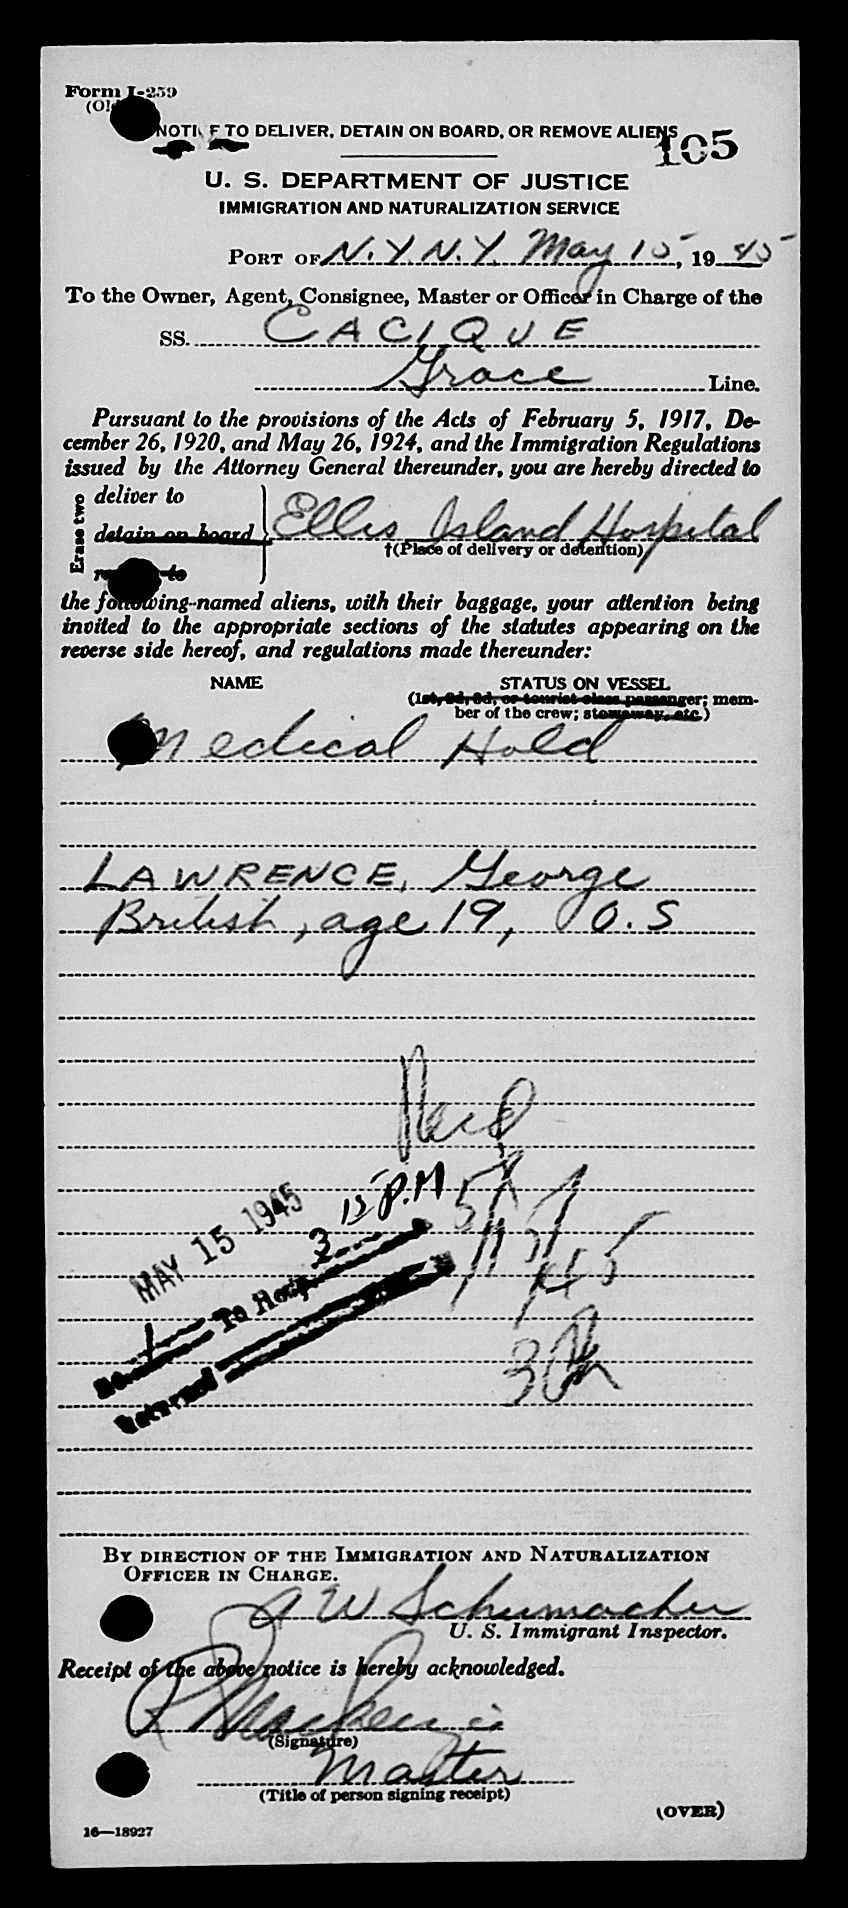 Form I-259
(Ol
NOTICE TO DELIVER, DETAIN ON BOARD, OR REMOVE ALIENS
105
U. S. DEPARTMENT OF JUSTICE
IMMIGRATION AND NATURALIZATION SERVICE
PORT OF N.Y. N.Y. May 15, 1945
To the Owner, Agent, Consignee, Master or Officer in Charge of the
SS. CACIQUE
Grace Line.
Pursuant to the provisions of the Acts of February 5, 1917, De-
cember 26, 1920, and May 26, 1924, and the Immigration Regulations
issued by the Attorney General thereunder, you are hereby directed to
Erase two
deliver to
detain on board
Ellis Island Hospital
†(Place of delivery or detention)
to
the following-named aliens, with their baggage, your attention being
invited to the appropriate sections of the statutes appearing on the
reverse side hereof, and regulations made thereunder:
NAME STATUS ON VESSEL
(1st, 2d, 3d, or tourist class passenger; mem-
ber of the crew; stowaway, etc.)
Medical Hold
LAWRENCE, George
British, age 19, O.S
Rec'd
5/15/45
MAY 15 1945
3 15 P.M
1 To Hosp.
Returned
BY DIRECTION OF THE IMMIGRATION AND NATURALIZATION
OFFICER IN CHARGE.
A W Schumacher
U. S. Immigrant Inspector.
Receipt of the above notice is hereby acknowledged.
R Mackenzie
(Signature)
Master
(Title of person signing receipt)
(OVER)
16—18927